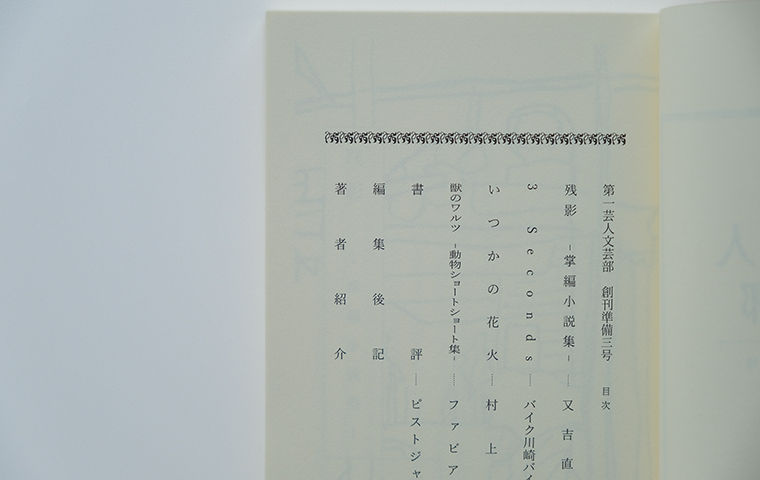 第一芸人文芸部 創刊準備三号 目次
残影 -掌編小説集- — 又吉直
3 Seconds — バイク川崎バイ
いつかの花火 — 村上
獣のワルツ -動物ショートショート集- — ファビア
書評 — ピストジャ
編集後記
著者紹介